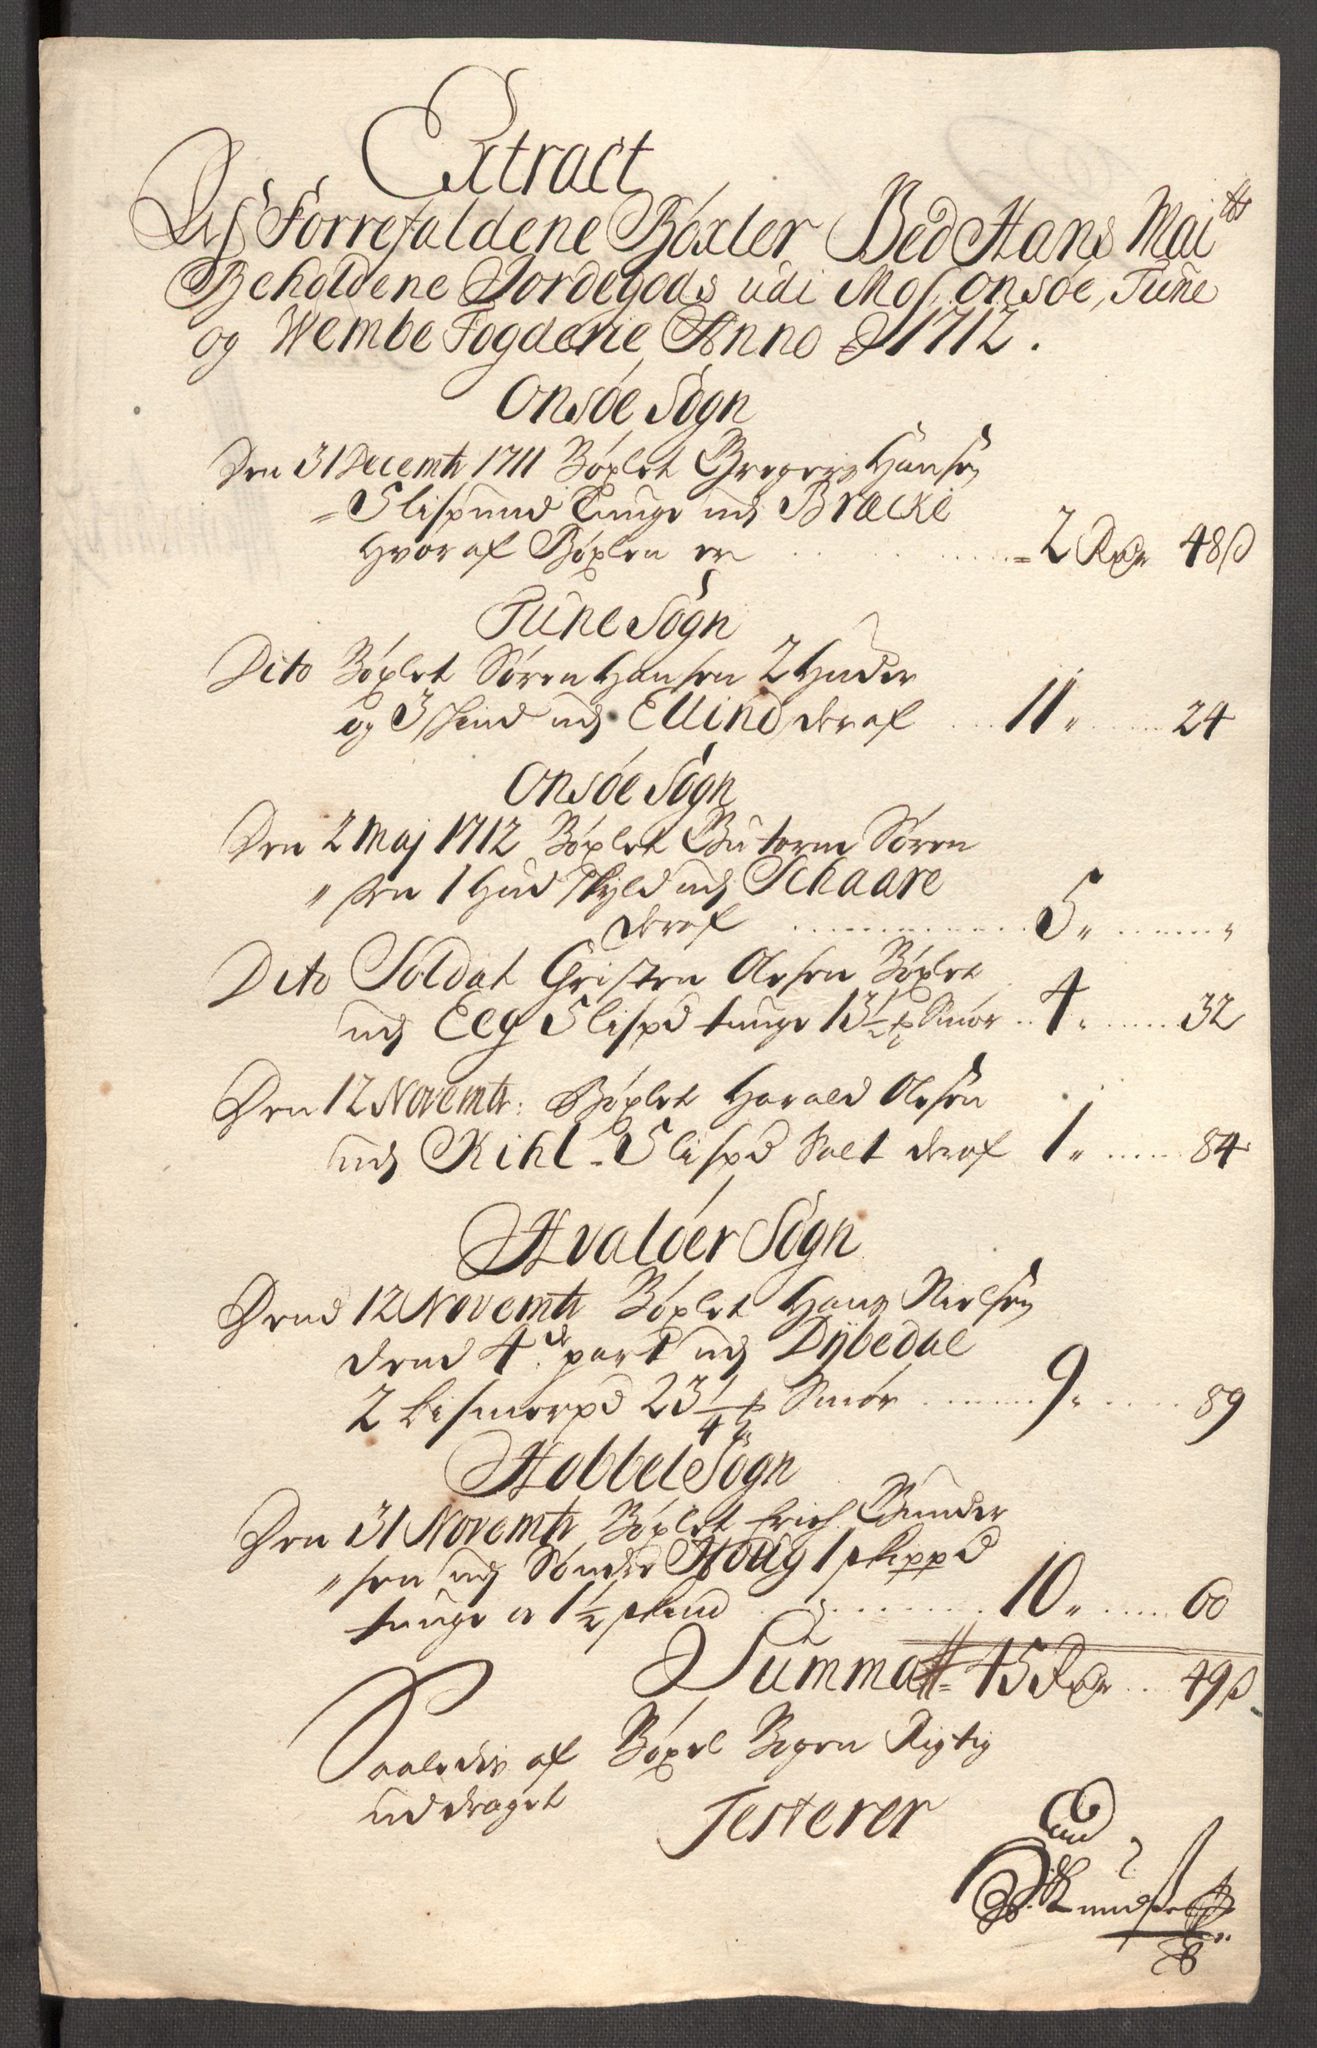 Extract
Af Forrefaldene Böxler Ved Hans Mai^tts
Beholdene Jordegods udi Moss, Onsöe, Tune
og Wembe Fogderie Anno 1712.
Onsöe Sogn
Den 31 Decembr 1711 Böxlet Gregers Hansen
5 lispund Tunge udj Bracke
hvoraf Böxlen er ... 2 Rdr 48 ß
Tune Sogn
Dito Böxlet Sören Hansen 2 huder
og 3 skind udj Ellind deraf ... 11 „ ... 24
Onsöe Sogn
Den 2 Maj 1712 Böxlet Gutorm Sören
„ sen 1 hud skyld udj Schaare
deraf ... 5 „ ... „
Dito Soldat Christen Olesen Böxlet
udj Eeg 5 lispd tunge 13½ Smör .. 4 „ ... 32
Den 12 Novembr: Böxlet Harald Olesen
udj Kihl - 5 lispd Salt deraf 1 „ ... 84
Hvalöer Sogn
Dend 12 Novembr Böxlet Hans Nielsen
dend 4^de part udj Dybedal
2 bismerpd 23¼ Smör ... 9 „ ... 89
Hobbel Sogn
Den 31 Novembr Böxlet Erich Gunder
„ sen udj Sönder Houg 1 skippd
tunge og 1½ skind ... 10 „ ... 60
Summa 45 Rdr .. 49 ß
Saaledis af Böxel Bogen Rigtig
uddraget
Testerer
Knudsen